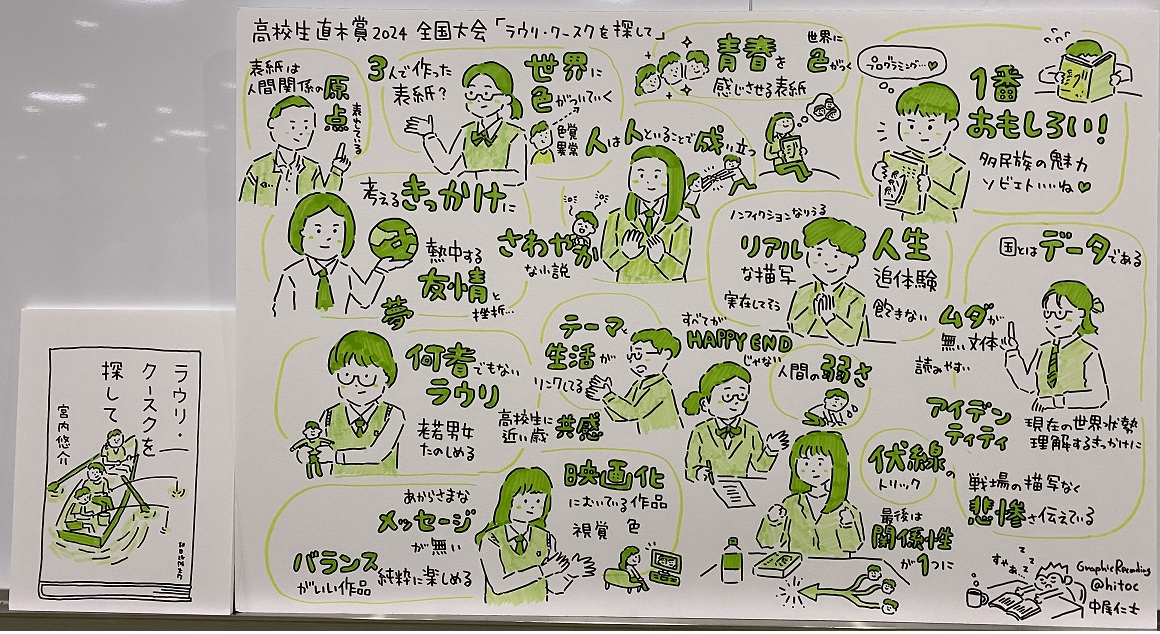 高校生直木賞2024 全国大会「ラウリ・クースクを探して」
表紙は
人間関係の原点
表わしている
3人で作った
表紙?
世界に
色がついていく
色覚
異常
青春を
感じさせる表紙
世界に
色がつく
プログラミング…♡
1番
おもしろい!
多民族の魅力
ソビエトいいね♡
人は人といることで成り立つ
考えるきっかけに
熱中する
友情と
夢
挫折…
さわやか
な小説
ノンフィクションなりうる
リアル
な描写
実在してそう
人生
追体験
飽きない
国とはデータである
ムダが
無い文体
読みやすい
アイデン
ティティ
現在の世界状勢
理解するきっかけに
何者でもない
ラウリ
老若男女
たのしめる
テーマと
生活が
リンクしてる
高校生に
近い歳
共感
すべてが
HAPPY END
じゃない
人間の弱さ
伏線の
トリック
最後は
関係性
が1つに
戦場の描写なく
悲惨さ伝えている
あからさまな
メッセージ
が無い
バランス
がいい作品
純粋に楽しめる
映画化
にむいている作品
視覚 色
すやぁ…
Graphic Recording
@hitoc
中尾仁士
ラウリ・
クースクを
探して
宮内悠介